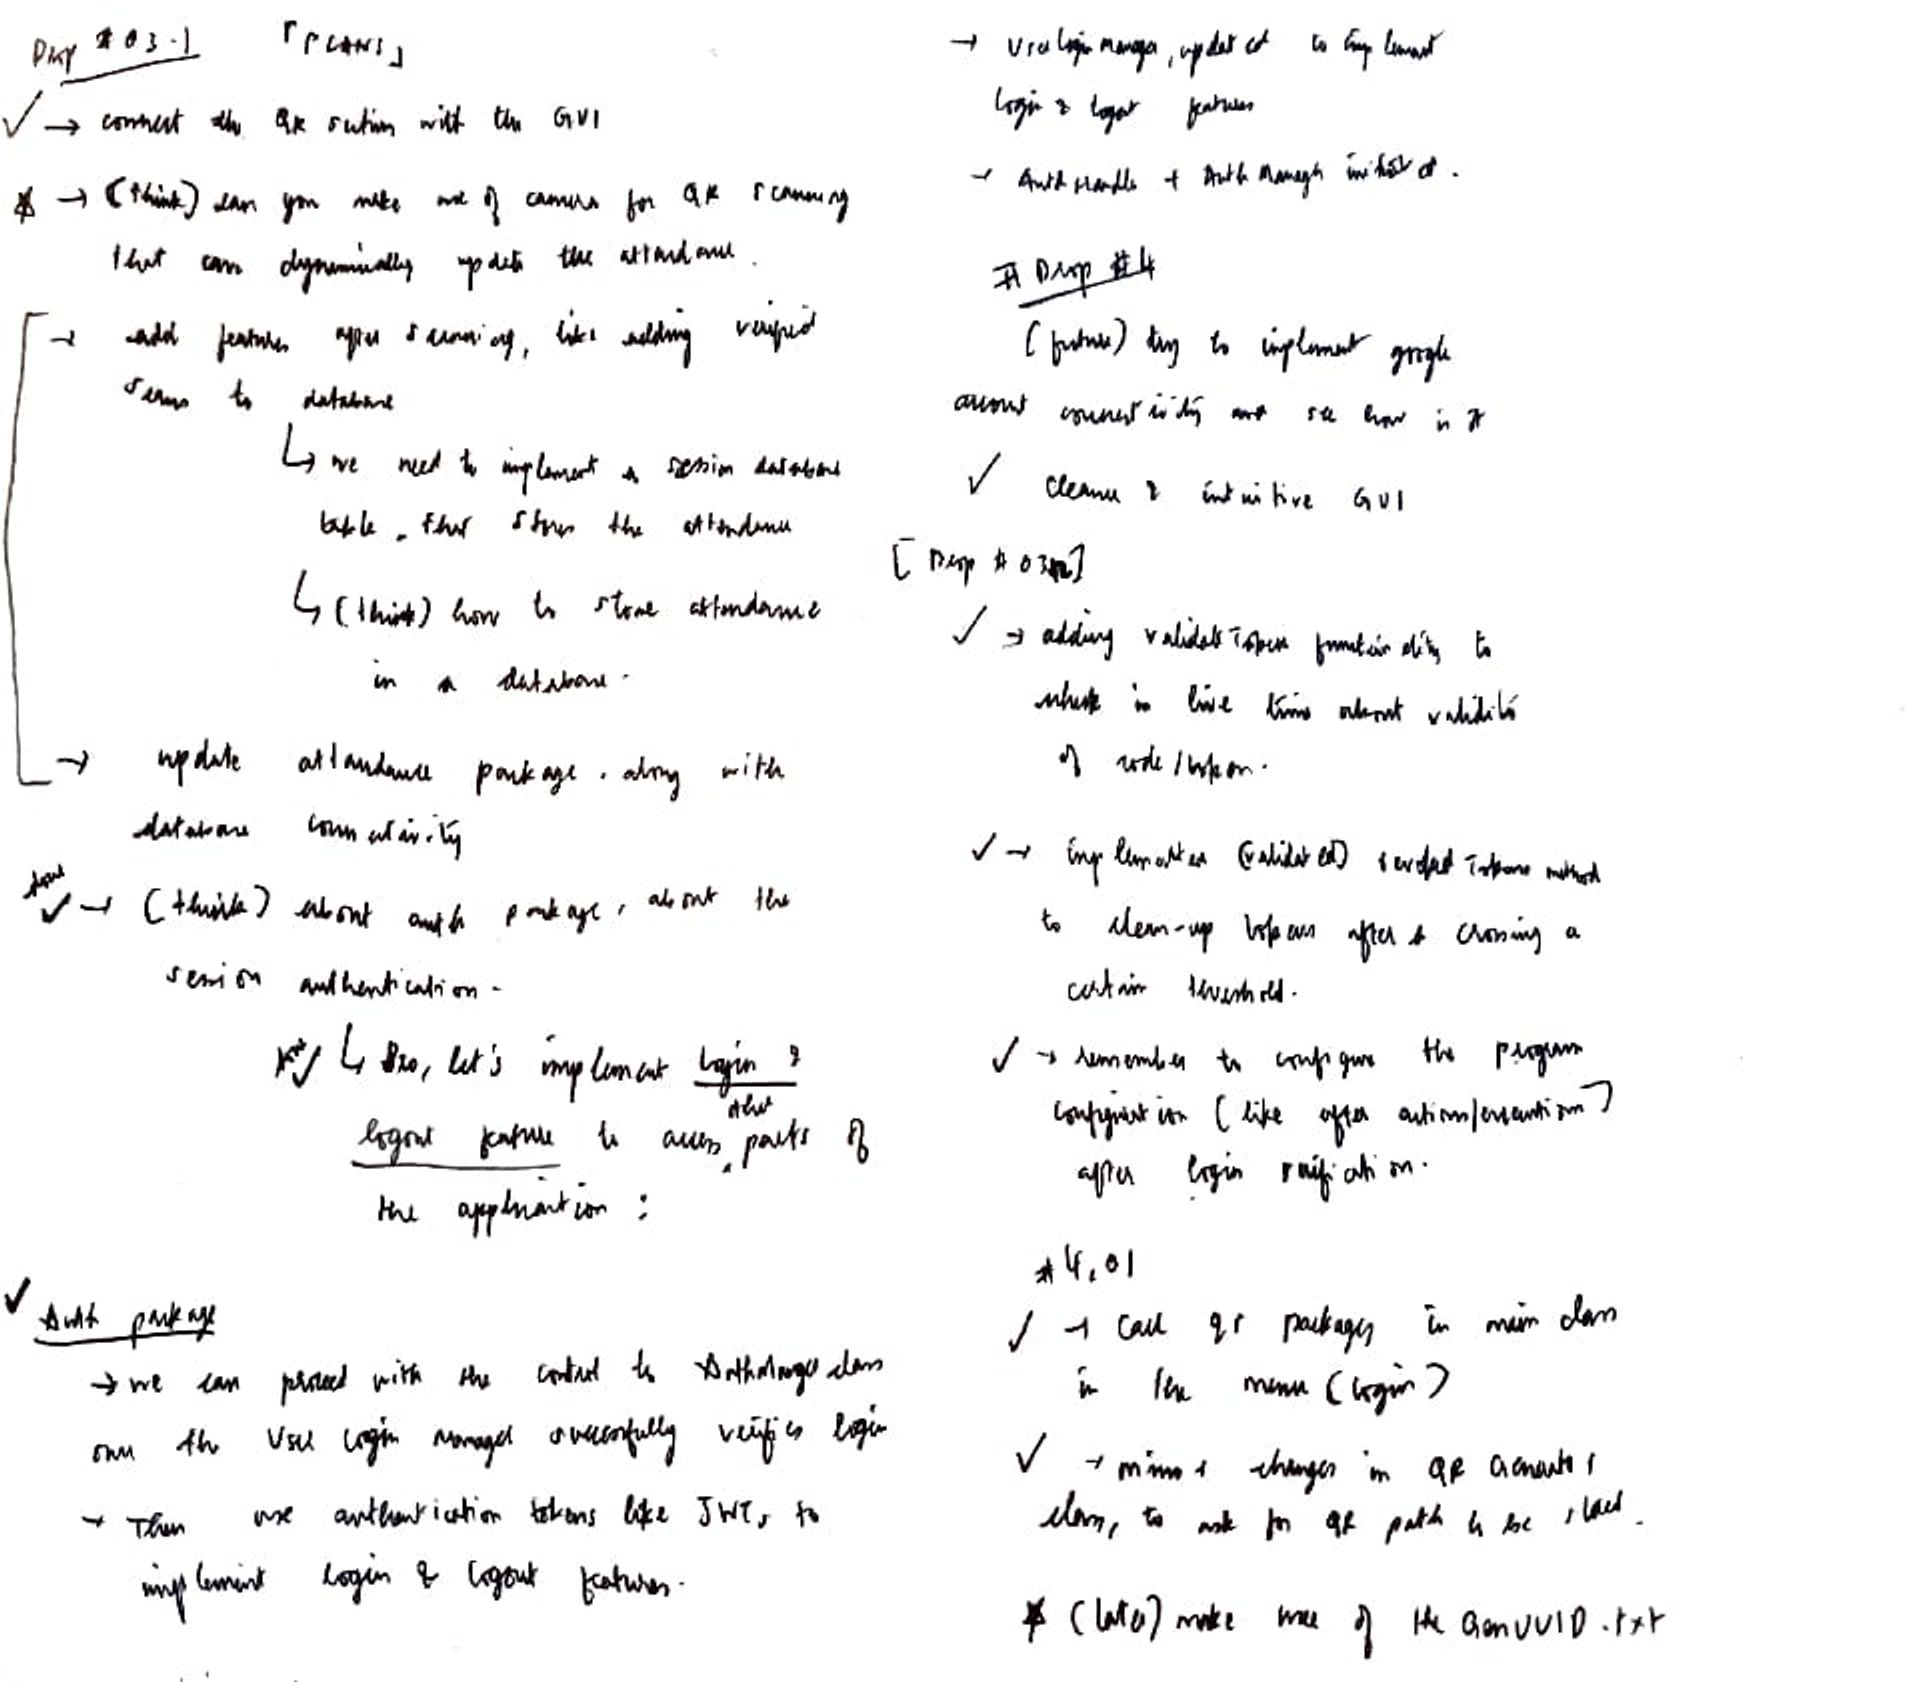 Drop #03.1 「PLANS」
✓ → connect the QR section with the GUI
☆ → (think) can you make use of camera for QR scanning
that can dynamically update the attendance.
→ add features after scanning, like adding verified
to database
↳ we need to implement a session database
table. that stores the attendance
↳ (think) how to store attendance
in a database.
→ update attendance package. along with
database connectivity
✓ → (think) about auth package, about the
session authentication.
✓ ↳ Bro, let's implement login &
other
logout feature to access parts of
the application:
✓ Auth package
→ we can proceed with the control to AuthManager class
once the User Login Manager successfully verifies login
→ Then use authentication tokens like JWTs to
implement login & logout features.
→ UserLoginManager, updated to implement
login & logout features
→ AuthHandler + AuthManager initiated.
# Drop #4
(future) try to implement google
account connectivity and see how is it
✓ cleaner & intuitive GUI
[Drop #03]
✓ → adding validateToken functionality to
check in live time about validity
of code/token.
✓ → implemented (validated) Tokens method
to clean-up tokens after crossing a
certain threshold.
✓ → remember to configure the program
configuration (like after action/execution)
after login verification.
#4.01
✓ → call qr packages in main class
in the menu (login)
✓ → minor changes in QR Generator
class, to ask for QR path to be stored.
☆ (later) make use of the GenUUID.txt